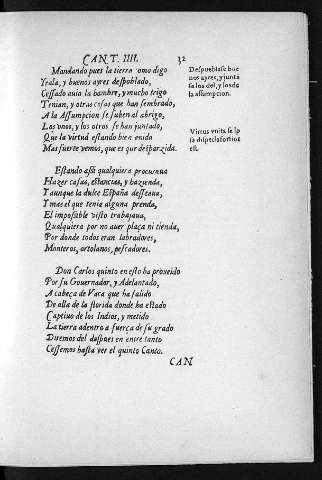 CANT. IIII. 32
Mandando pues la tierra como digo
Yrala, y buenos ayres despoblado,
Cessado auia la hambre, y mucho trigo
Tenian, y otras cosas que han sembrado,
A la Assumpcion se suben al abrigo,
Los vnos, y los otros se han juntado,
Que la virtud estando bien vnida
Mas fuerte vemos, que es que desparzida.
Despueblase bue
nos ayres, y junta
se los del, y los de
la assumpcion.
Virtus vnita se ip
sa dispersa fortior
est.
Estando assi qualquiera procuraua
Hazer casas, estancias, y hazienda,
Y aunque la dulce España desseaua,
Y mas el que tenia alguna prenda,
El impossible visto trabajaua,
Qualquiera por no auer plaça ni tienda,
Por donde todos eran labradores,
Monteros, ortolanos, pescadores.
Don Carlos quinto en esto ha proueido
Por su Gouernador, y Adelantado,
A cabeça de Vaca que ha salido
De alla de la florida donde ha estado
Captiuo de los Indios, y metido
La tierra adentro a fuerça de su grado
Diremos del despues en entre tanto
Cessemos hasta ver el quinto Canto.
CAN